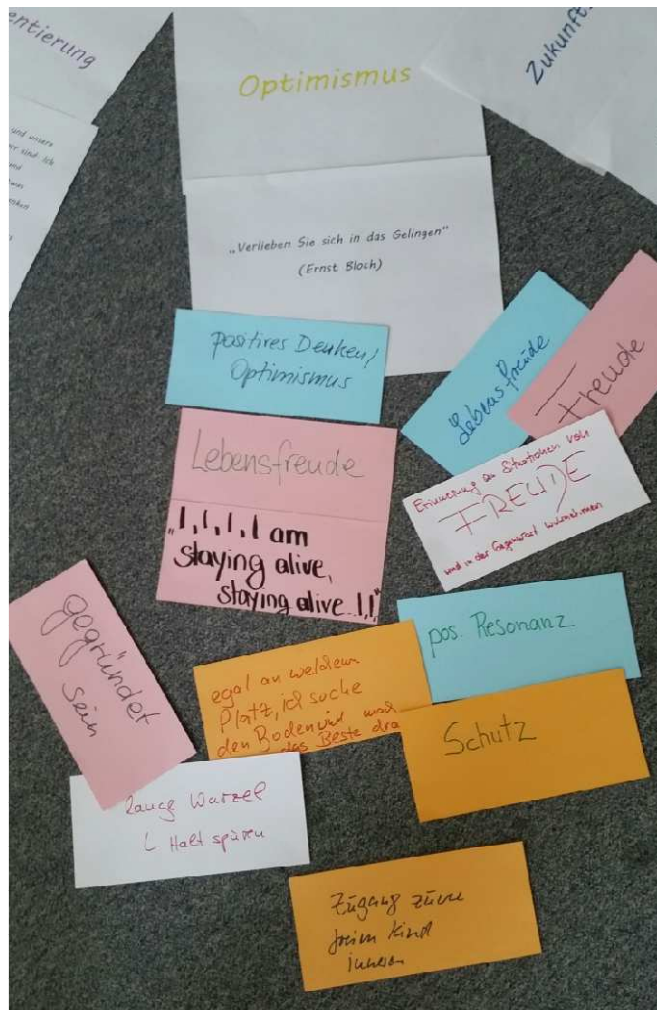 entierung
Optimismus
Zukunfts
und unsere
wir sind. Ich
und
„Verlieben Sie sich in das Gelingen“
(Ernst Bloch)
positives Denken/
Optimismus
Lebensfreude
Freude
Lebensfreude
Erinnerung an Situationen von
FREUDE
und in der Gegenwart wahrnehmen
„I, I, I, I am
staying alive,
staying alive I,I“
gegründet
sein
pos. Resonanz
egal an welchem
Platz, ich suche
den Boden und
das Beste dra
Schutz
Lange Wurzel
Halt spüren
Zugang zum
freien Kind
inneren